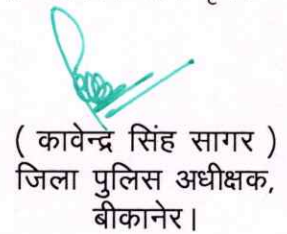 ( कावेन्द्र सिंह सागर )
जिला पुलिस अधीक्षक,
बीकानेर।